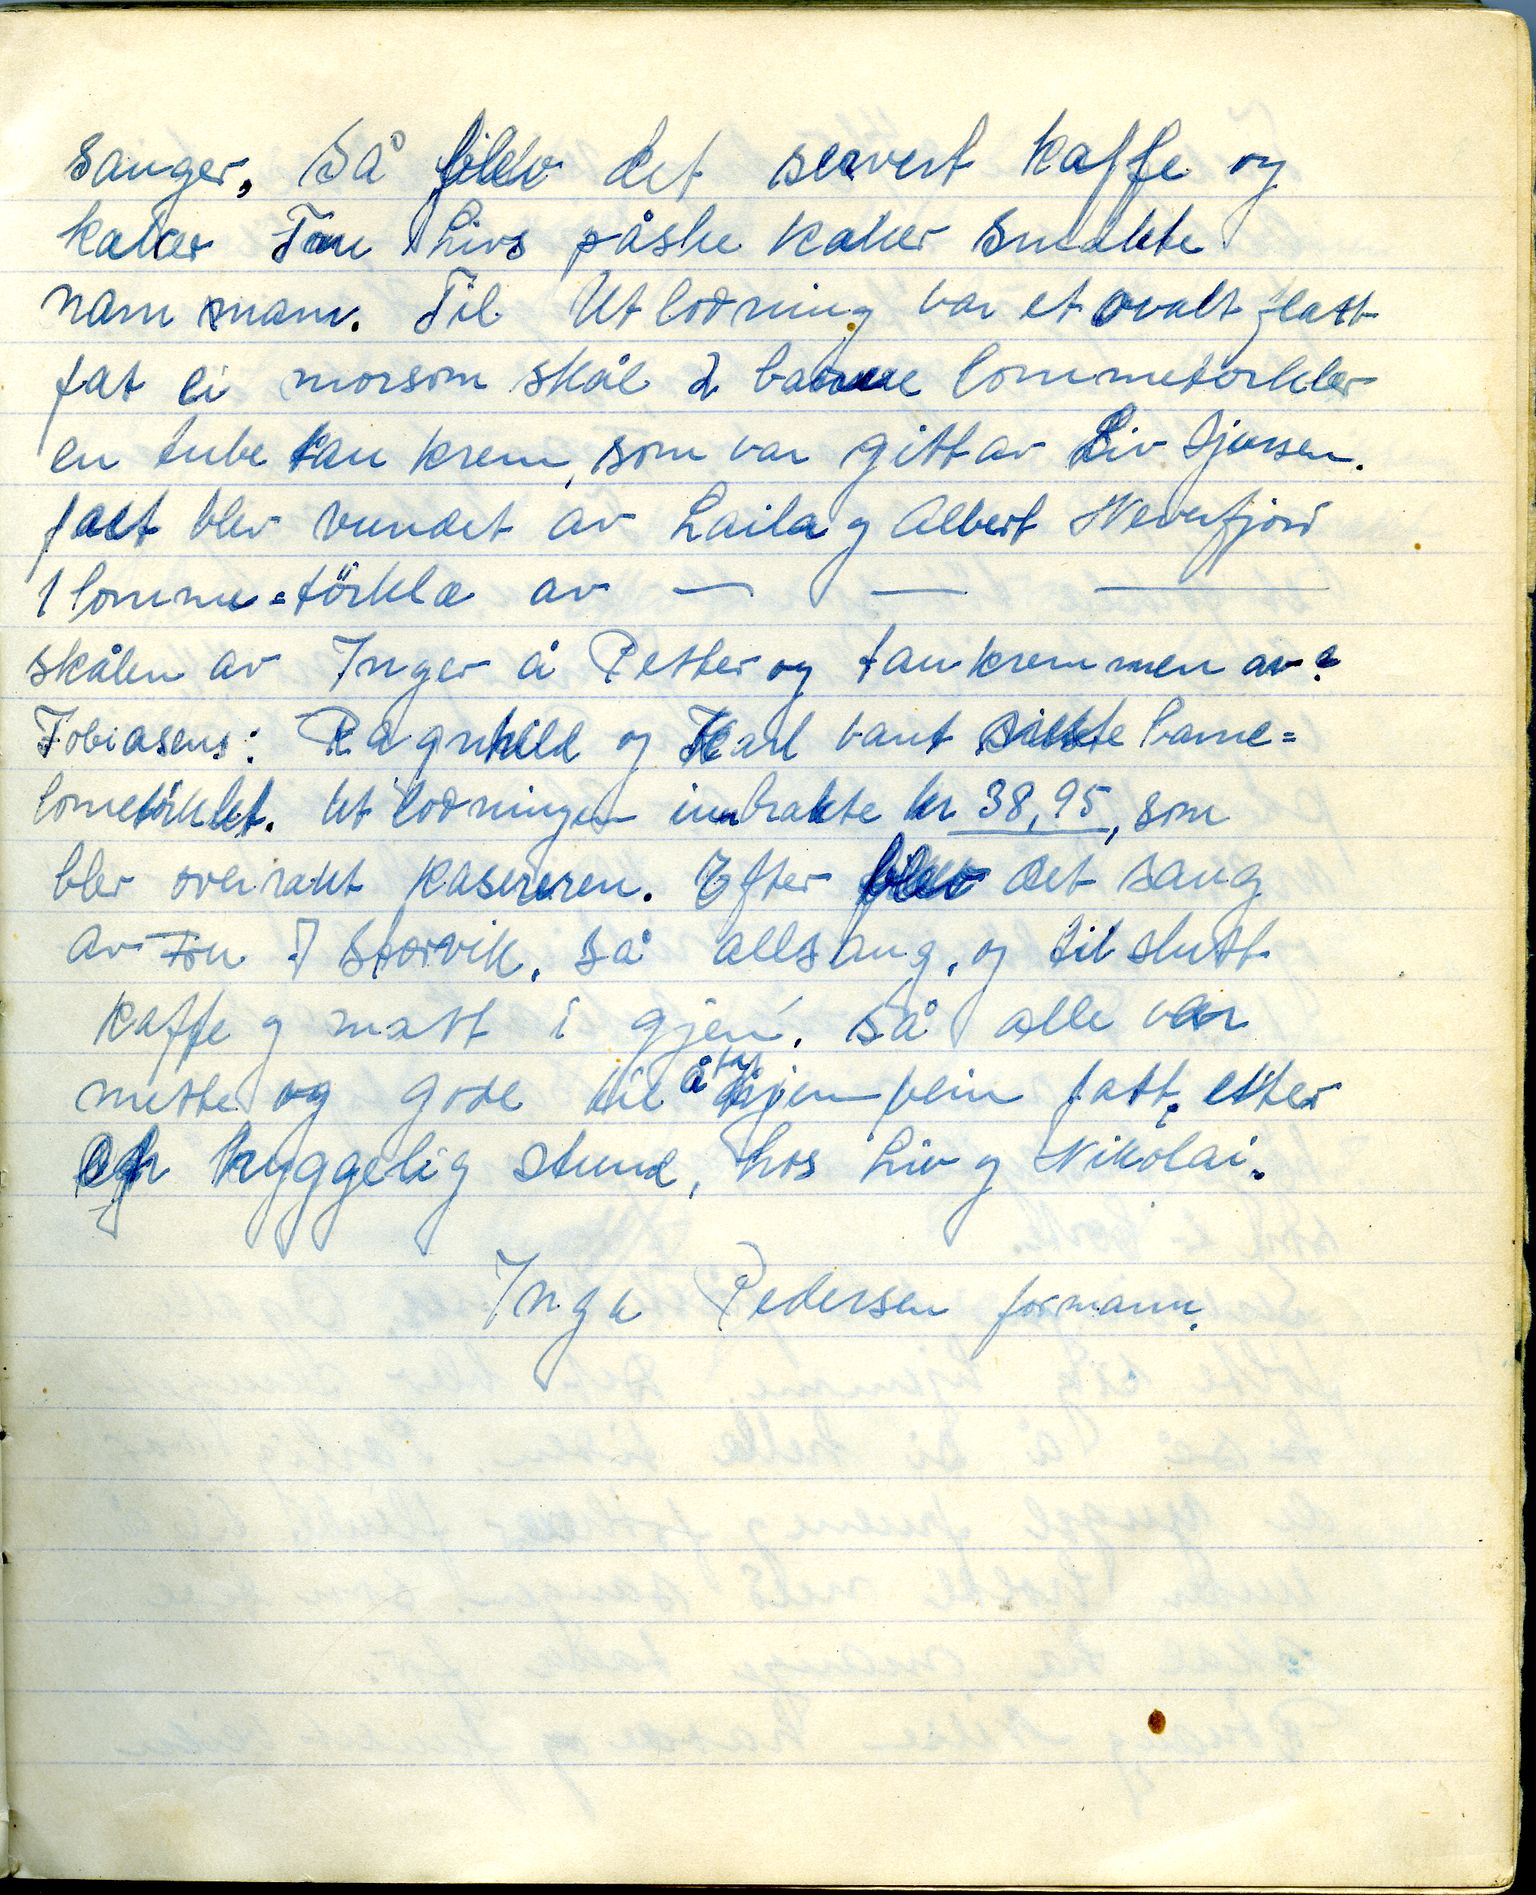 sanger, Så blev det servert kaffe og
kaker Fru Livs påske kaker smakte
nam mam. Til Utlodning var et ovalt flatt
fat ei morsom skål 2 barne lommetörkler
en tube tan krem, som var gitt av Liv
fatt blev vundet av Laila og Albert Neverfjord
1 lomme=törkla av — — —
skålen av Inger å Petter og tankremmen av:
Tobiasens: Ragnhild og Karl vant siste barne=
lometörklet. Utlodningen innbrakte kr 38,95, som
blev overrakt kasereren. Efter blev det sang
av Fru Storvik. så allsang, og til slutt
kaffe og matt i gjen. så alle var
mette og gode til å ta hjem vein fatt. etter
en hyggelig stund, hos Liv og Nikolai.
Inga Pedersen formann.